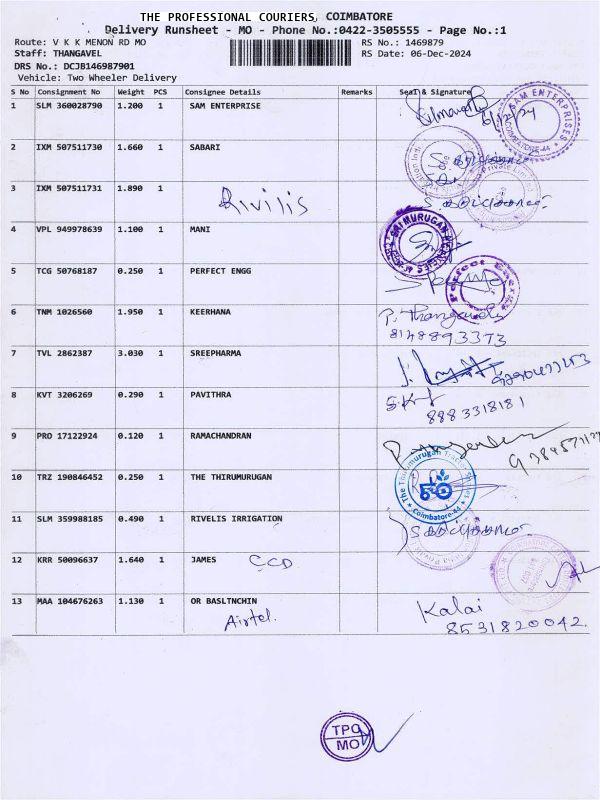 THE PROFESSIONAL COURIERS, COIMBATORE
Delivery Runsheet - MO - Phone No.:0422-3505555 - Page No.:1
Route: V K K MENON RD MO
RS No.: 1469879
Staff: THANGAVEL
RS Date: 06-Dec-2024
DRS No.: DCJB146987901
Vehicle: Two Wheeler Delivery
S No Consignment No Weight PCS Consignee Details Remarks Seal & Signature
1 SLM 360028790 1.200 1 SAM ENTERPRISE
6/12/24
SAM ENTERPRISES COIMBATORE-44
2 IXM 507511730 1.660 1 SABARI
3 IXM 507511731 1.890 1
Rivilis
4 VPL 949978639 1.100 1 MANI
SRI MURUGAN AGENCIES
5 TCG 50768187 0.250 1 PERFECT ENGG
6 TNM 1026560 1.950 1 KEERHANA
P. Thangavelu
8148893373
7 TVL 2862387 3.030 1 SREEPHARMA
8 KVT 3206269 0.290 1 PAVITHRA
8883318181
9 PRO 17122924 0.120 1 RAMACHANDRAN
10 TRZ 190846452 0.250 1 THE THIRUMURUGAN
The Thirumurugan Tractor Spares Coimbatore-44
11 SLM 359988185 0.490 1 RIVELIS IRRIGATION
12 KRR 50096637 1.640 1 JAMES
CCD
13 MAA 104676263 1.130 1 OR BASLTNCHIN
Airtel.
Kalai
8531820042.
TPC
MO